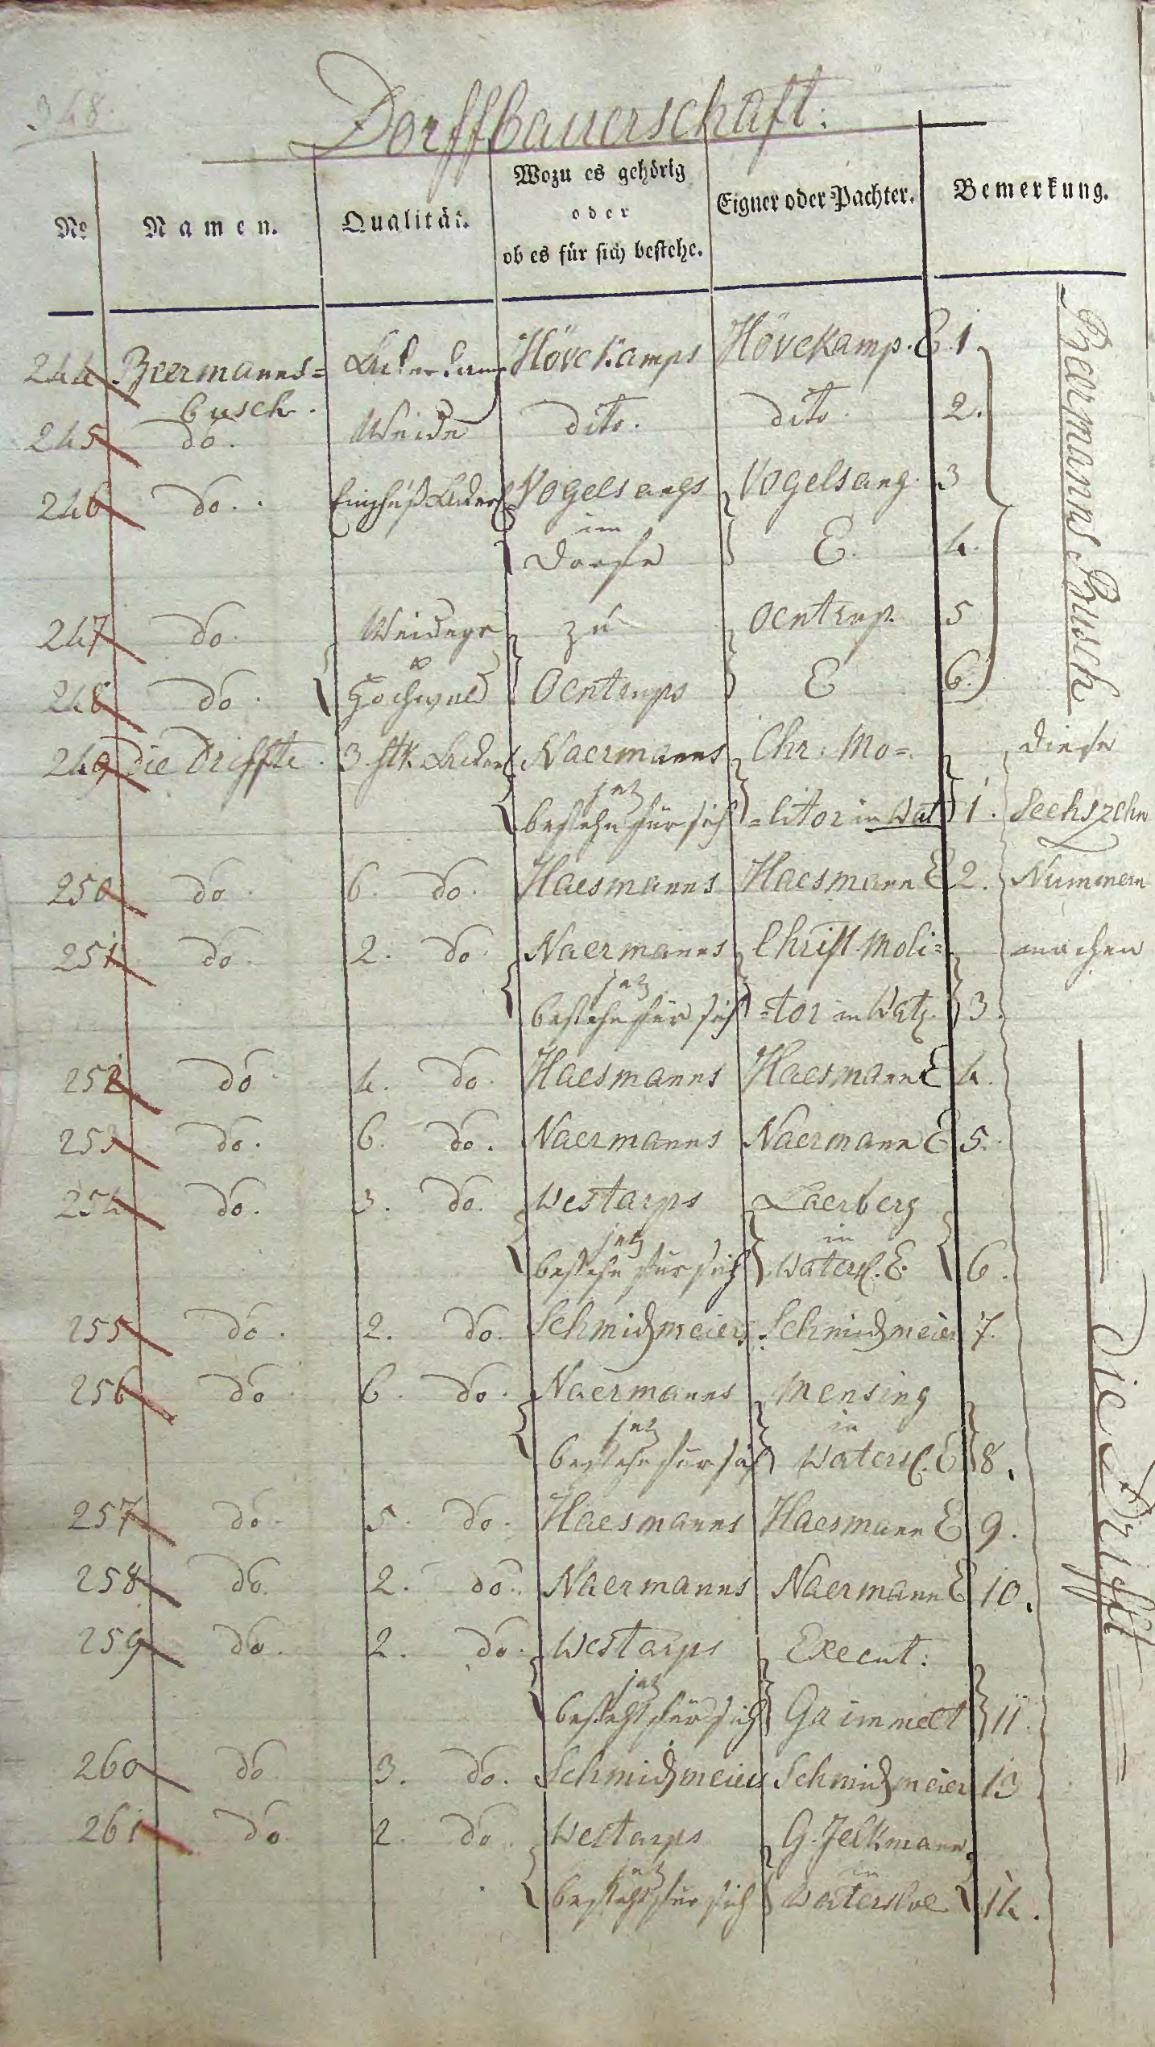 348.
Dorffbauerschaft:
No Namen. Qualität. Wozu es gehörig oder ob es für sich bestehe. Eigner oder Pachter. Bemerkung.
244 Beermanns= Hövekamps Hövekamp. E. 1
busch.
245 do. Weide dito. dito. 2.
246 do. Vogelsangs Vogelsang. 3
im
Dorfe E. 4.
247 do. zu Oentrup. 5
248 do. Oentrups E 6.
Beermanns Busch
249 die Driffte. 3. stk. Naermanns Chr: Mo=. diese
jetz
bestehe für sich =litor in Wat 1. Sechszehn
250 do. 6. do. Haesmanns Haesmann E 2. Nummern
251 do. 2. do. Naermanns Christ. Moli= machen
jetz
bestehe für sich =tor in Wat. 3.
252 do. 4. do. Haesmanns Haesmann E 4.
253 do. 6. do. Naermanns Naermann E 5.
254 do. 3. do. Westarps Laerberg
jetz in
bestehe für sich Watersl. E. 6.
255 do. 2. do. Schmidmeiers Schmidmeier 7.
256 do. 6. do. Naermanns Mensing
jetz in
bestehe für sich Watersl. E 8.
257 do. 5. do. Haesmanns Haesmann E 9.
258 do. 2. do. Naermanns Naermann E 10.
259 do. 2. do. Westarps Execut:
jetz
besteht für sich Grimmelt 11.
260 do. 3. do. Schmidmeiers Schmidmeier 13
261 do. 2. do. Westarps G. Jelkmann.
jetz in
besteht für sich Watersloe 14.
Die Drifft